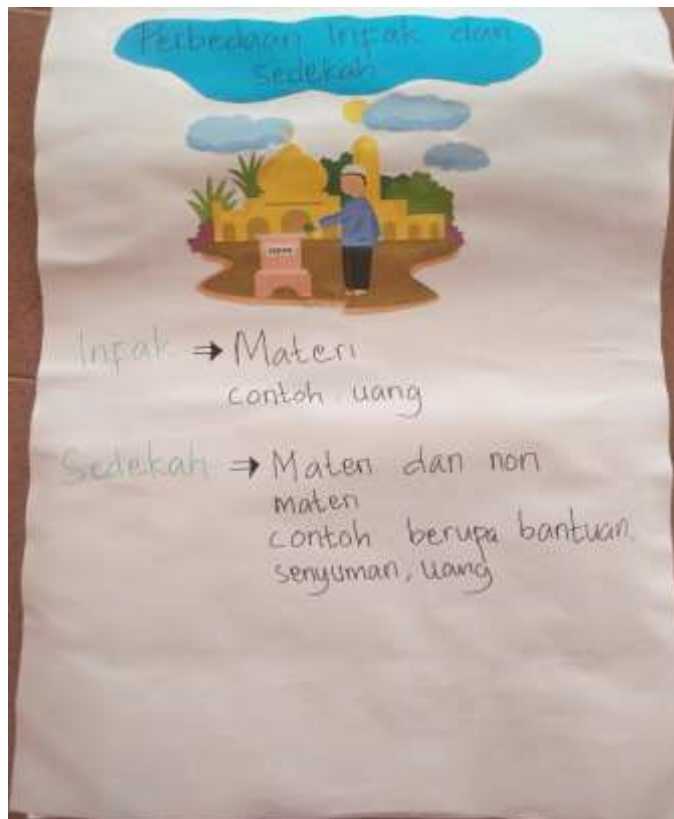 Perbedaan Infak dan
Sedekah
Infak ⇒ Materi
contoh uang
Sedekah ⇒ Materi dan non
materi
contoh berupa bantuan,
senyuman, uang